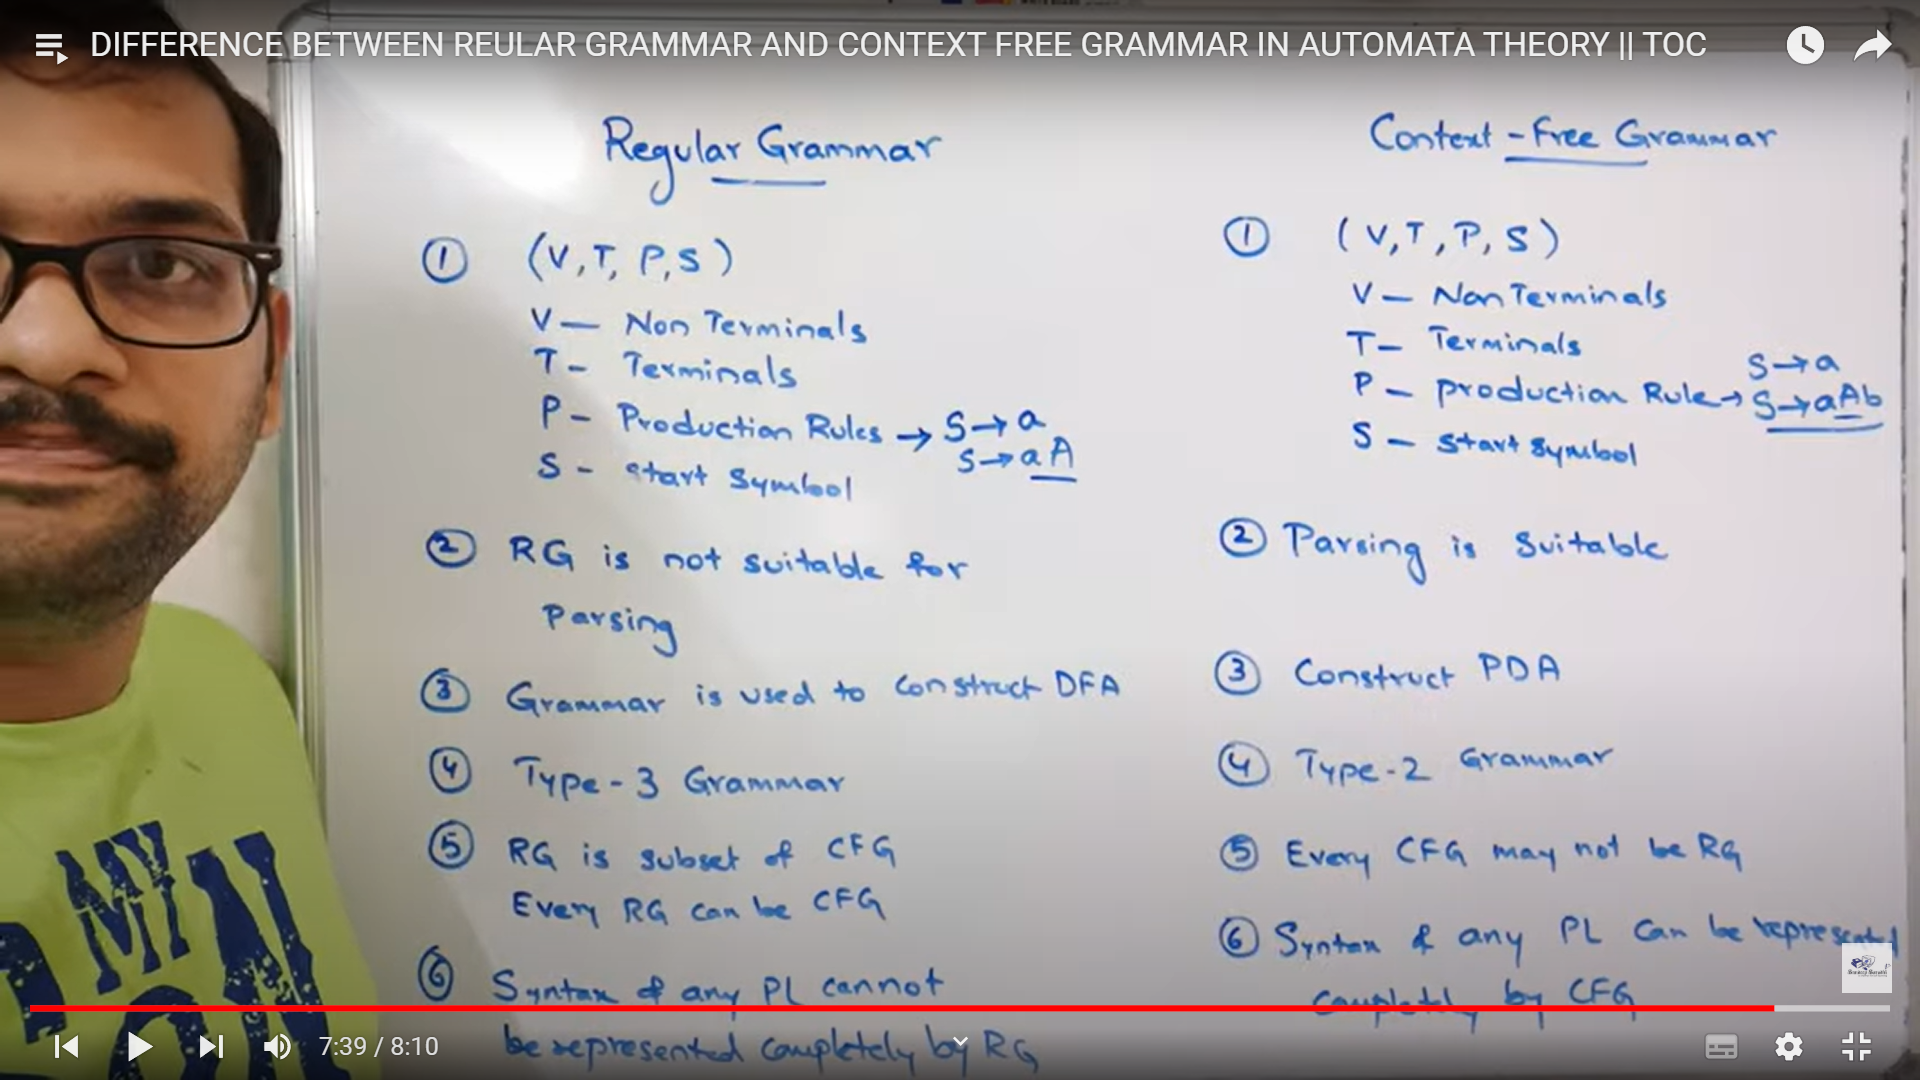 DIFFERENCE BETWEEN REULAR GRAMMAR AND CONTEXT FREE GRAMMAR IN AUTOMATA THEORY || TOC
Regular Grammar
① (V, T, P, S)
V — Non Terminals
T - Terminals
P - Production Rules → S → a
S → aA
S - start Symbol
② RG is not suitable for
Parsing
③ Grammar is used to construct DFA
④ Type - 3 Grammar
⑤ RG is subset of CFG
Every RG can be CFG
⑥ Syntax of any PL cannot
be represented completely by RG
Context - Free Grammar
① (V, T, P, S)
V — Non Terminals
T — Terminals
S → a
P — production Rule → S → aAb
S — start symbol
② Parsing is suitable
③ Construct PDA
④ Type - 2 Grammar
⑤ Every CFG may not be RG
⑥ Syntax of any PL can be represented
completely by CFG
MY
7:39 / 8:10